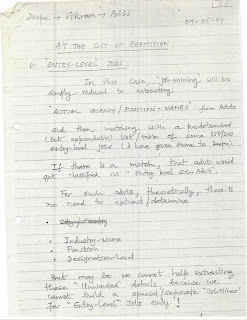 Deeba → Vikram → Abhi
07-05-04
AT THE COST OF REPETITION
▷ "ENTRY-LEVEL" JOBS
In this case, "job-mining" will be
simply reduced to extracting
"ACTUAL VACANCY / POSITION - NAMES" from Advts
and then matching with a predetermined
(but expandable) list/table of some 150/200
entry-level jobs (I have given some to Deepa).
If there is a match, that advt. would
get classified as "Entry Level Job-Advt".
For such advts, theoretically, there is
no need to extract/determine
• City / Country
• Industry-Name
• Function
• Designation-Level
But may be we cannot help extracting
these "Unwanted" details, because we
cannot build a special/separate "JobMiner"
for "Entry-Level" Jobs only!